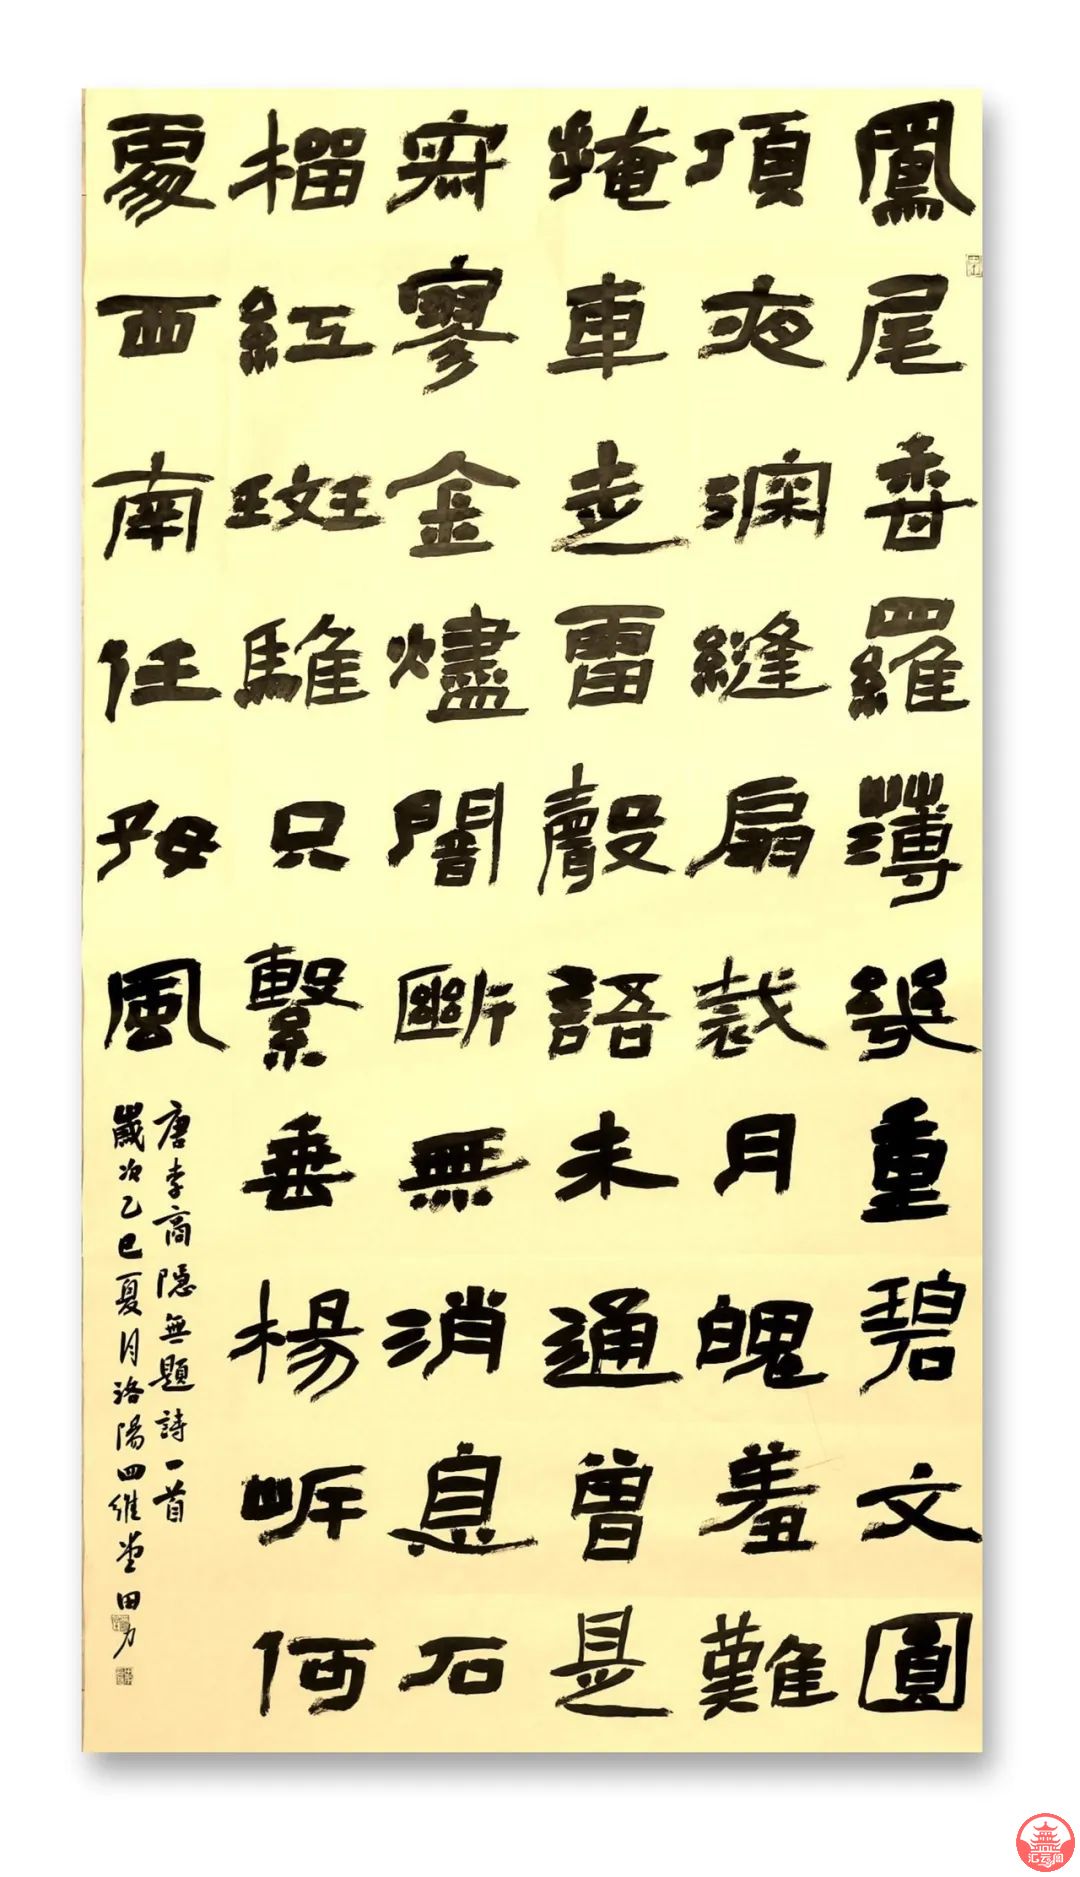 鳳尾香羅薄幾重碧文圓
頂夜深縫扇裁月魄羞難
掩車走雷聲語未通曾是
寂寥金燼闇斷無消息石
榴紅斑騅只繫垂楊岸何
處西南任好風
唐李商隐無題詩一首
歲次乙巳夏月洛陽四維堂田力
汇云阁